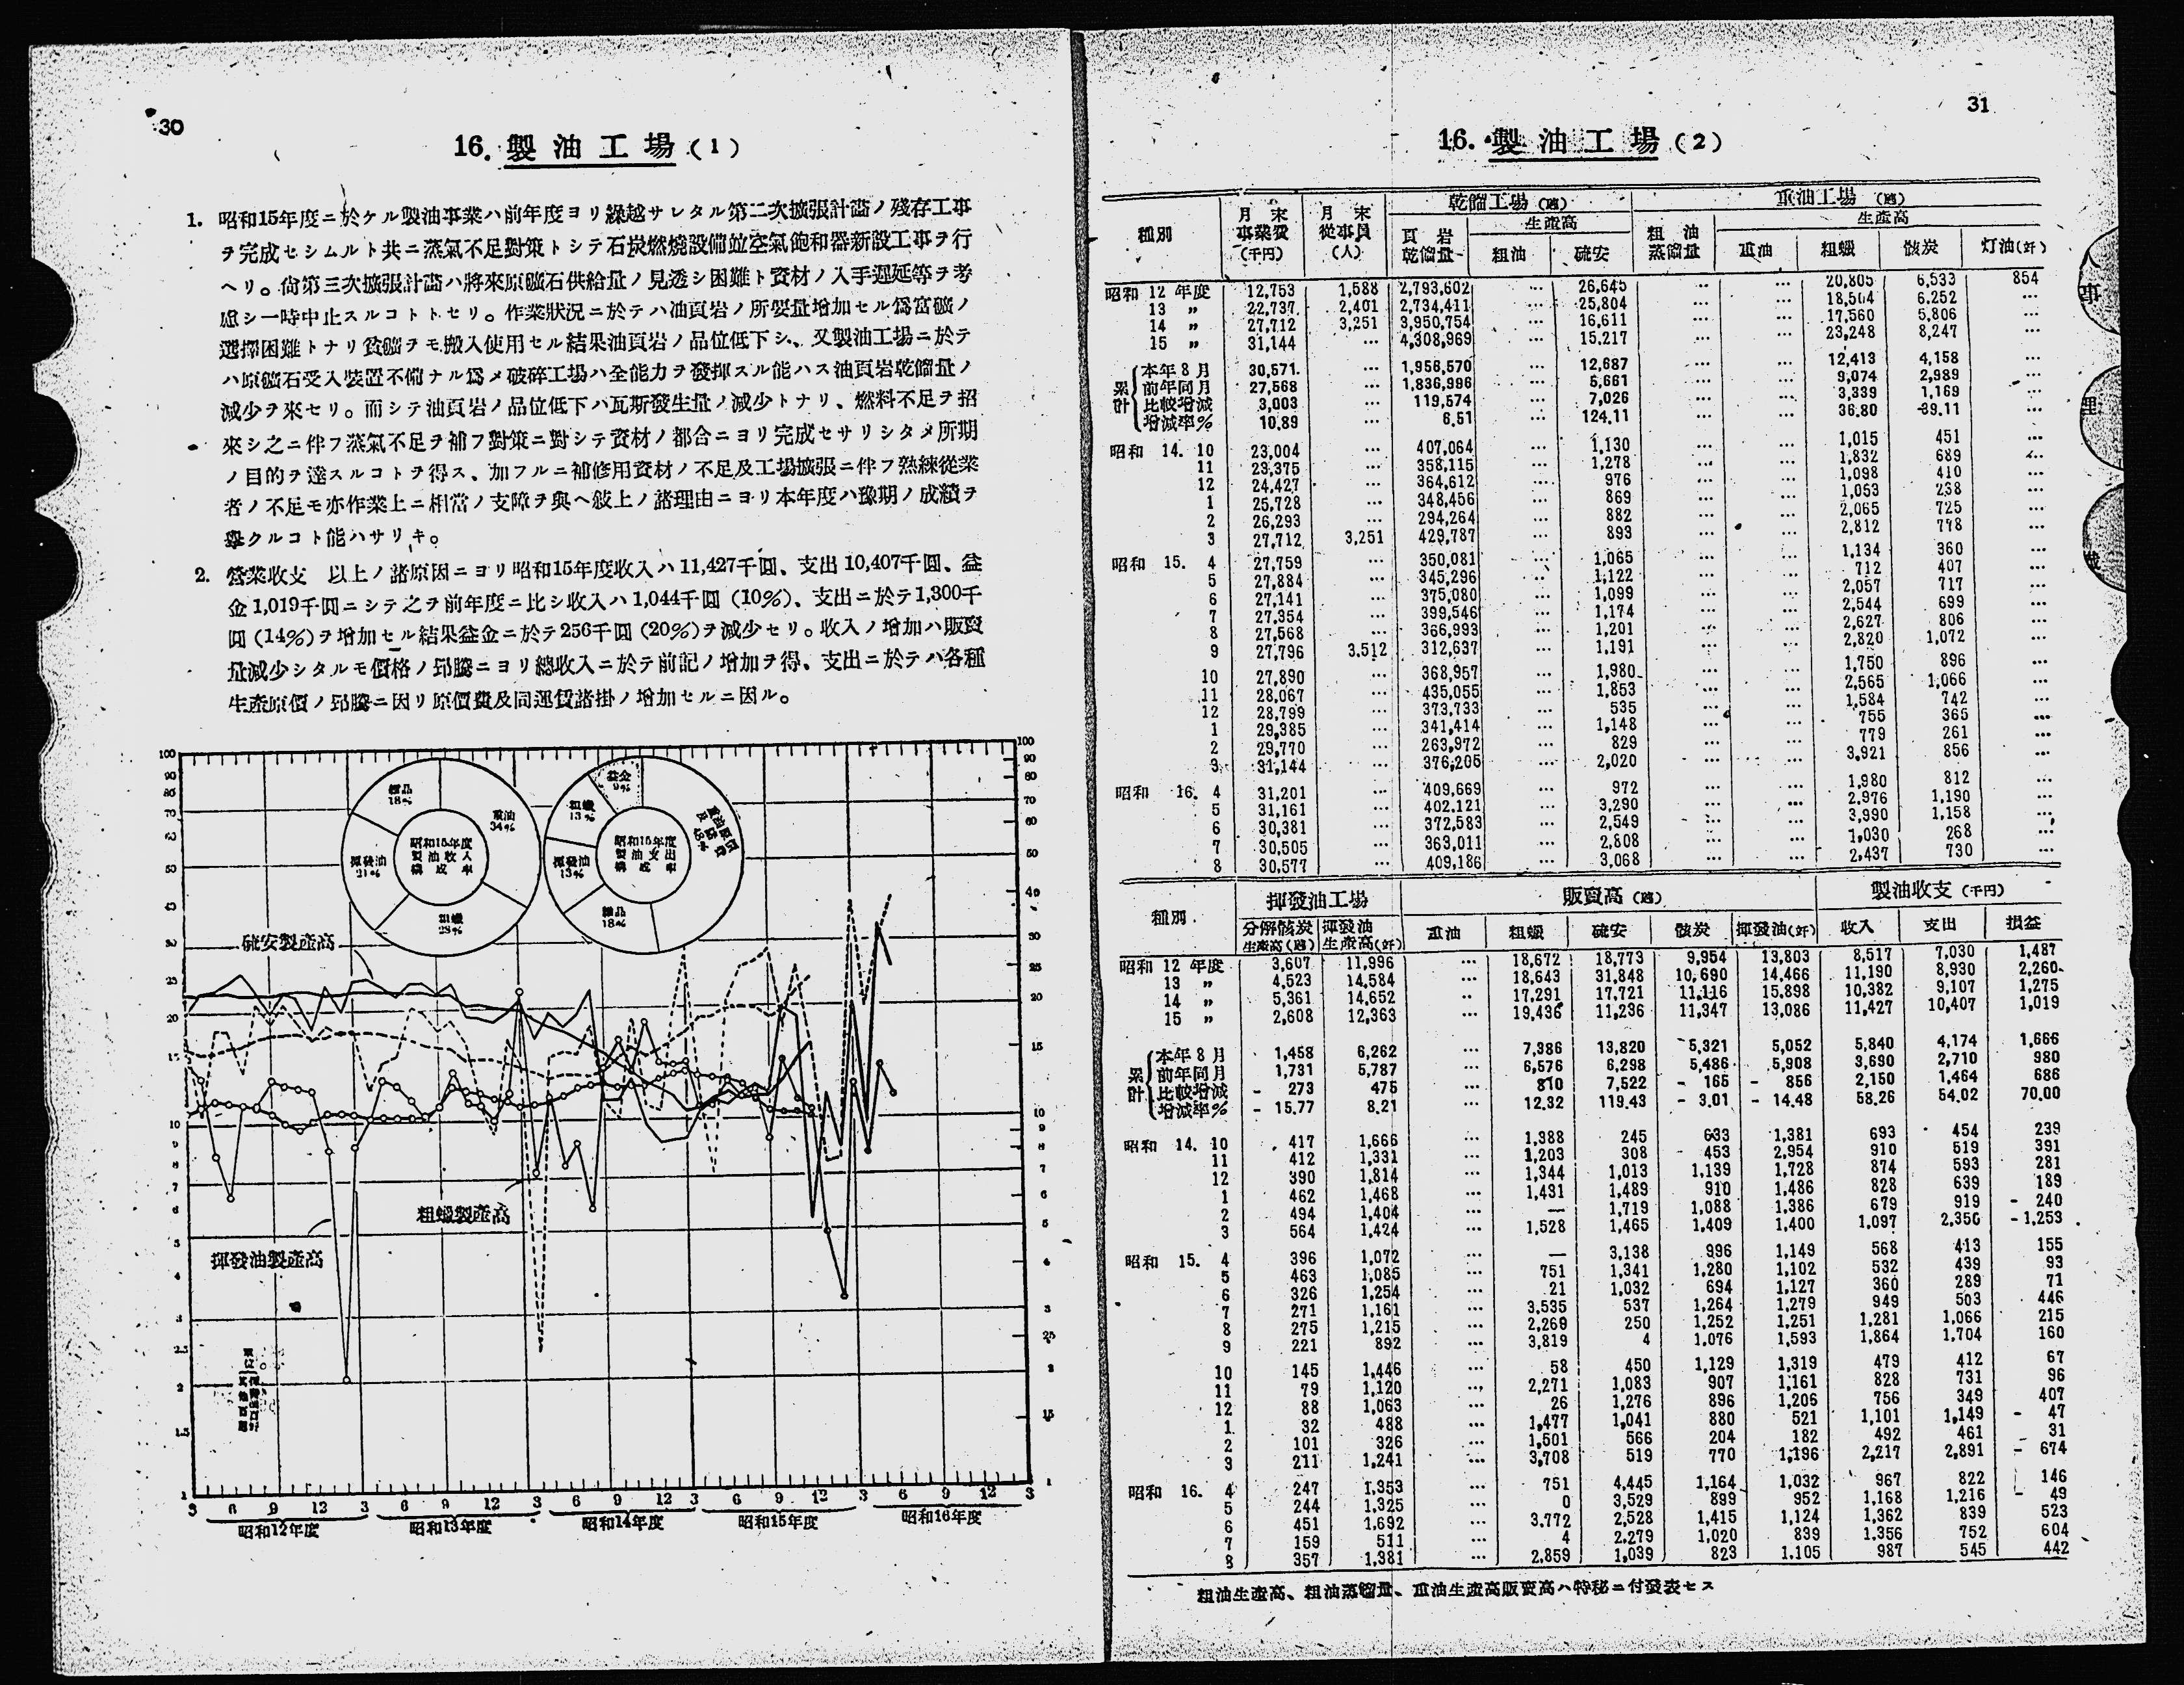 30
16. 製油工場 (1)
1. 昭和15年度ニ於ケル製油事業ハ前年度ヨリ繰越サレタル第二次擴張計畵ノ殘存工事
ヲ完成セシムルト共ニ蒸氣不足對策トシテ石炭燃燒設備竝空氣飽和器新設工事ヲ行
ヘリ。尙第三次擴張計畵ハ將來原鑛石供給量ノ見透シ困難ト資材ノ入手遲延等ヲ考
慮シ一時中止スルコトトセリ。作業狀況ニ於テハ油頁岩ノ所要量增加セル爲富礦ノ
選擇困難トナリ貧礦ヲモ搬入使用セル結果油頁岩ノ品位低下シ、又製油工場ニ於テ
ハ原礦石受入裝置不備ナル爲メ破碎工場ハ全能力ヲ發揮スル能ハス油頁岩乾餾量ノ
減少ヲ來セリ。而シテ油頁岩ノ品位低下ハ瓦斯發生量ノ減少トナリ、燃料不足ヲ招
來シ之ニ伴フ蒸氣不足ヲ補フ對策ニ對シテ資材ノ都合ニヨリ完成セサリシタメ所期
ノ目的ヲ達スルコトヲ得ス、加フルニ補修用資材ノ不足及工場擴張ニ伴フ熟練從業
者ノ不足モ亦作業上ニ相當ノ支障ヲ與ヘ敍上ノ諸理由ニヨリ本年度ハ豫期ノ成績ヲ
擧クルコト能ハサリキ。
2. 營業收支 以上ノ諸原因ニヨリ昭和15年度收入ハ11,427千圓、支出10,407千圓、益
金1,019千圓ニシテ之ヲ前年度ニ比シ收入ハ1,044千圓 (10%)、支出ニ於テ1,300千
圓 (14%)ヲ增加セル結果益金ニ於テ256千圓 (20%)ヲ減少セリ。收入ノ增加ハ販賣
量減少シタルモ價格ノ昂騰ニヨリ總收入ニ於テ前記ノ增加ヲ得、支出ニ於テハ各種
生產原價ノ昂騰ニ因リ原價費及同運賃諸掛ノ增加セルニ因ル。
昭和15年度
製油收入
構成率
重油 34%
粗蠟
揮發油 21%
18%
昭和15年度
製油支出
構成率
益金 9%
粗蠟 13%
揮發油 13%
18%
硫安製產高
粗蠟製產高
揮發油製產高
3 6 9 12 3 6 9 12 3 6 9 12 3 6 9 12 3 6 9 12 3
昭和12年度 昭和13年度 昭和14年度 昭和15年度 昭和16年度
31
16. 製油工場 (2)
種別 月末事業費(千円) 月末從事員(人) 乾餾工場 (瓲) 重油工場 (瓲)
頁岩乾餾量 生產高 粗油蒸餾量 生產高
粗油 硫安 重油 粗蠟 骸炭 灯油(竏)
昭和 12 年度 12,753 1,588 2,793,602 … 26,645 … … 20,805 6,533 854
13 〃 22,737 2,401 2,734,411 … 25,804 … … 18,504 6,252 …
14 〃 27,712 3,251 3,950,754 … 16,611 … … 17,560 5,806 …
15 〃 31,144 … 4,308,969 … 15,217 … … 23,248 8,247 …
累計 本年8月 30,571 … 1,956,570 … 12,687 … … 12,413 4,158 …
前年同月 27,568 … 1,836,996 … 5,661 … … 9,074 2,989 …
比較增減 3,003 … 119,574 … 7,026 … … 3,339 1,169 …
增減率% 10.89 … 6.51 … 124.11 … … 36.80 39.11 …
昭和 14. 10 23,004 … 407,064 … 1,130 … … 1,015 451 …
11 23,375 … 358,115 … 1,278 … … 1,832 689 …
12 24,427 … 364,612 … 976 … … 1,098 410 …
1 25,728 … 348,456 … 869 … … 1,053 238 …
2 26,293 … 294,264 … 882 … … 2,065 725 …
3 27,712 3,251 429,787 … 893 … … 2,812 778 …
昭和 15. 4 27,759 … 350,081 … 1,065 … … 1,134 360 …
5 27,884 … 345,296 … 1,122 … … 712 407 …
6 27,141 … 375,080 … 1,099 … … 2,057 717 …
7 27,354 … 399,546 … 1,174 … … 2,544 699 …
8 27,568 … 366,993 … 1,201 … … 2,627 806 …
9 27,796 3,512 312,637 … 1,191 … … 2,820 1,072 …
10 27,890 … 368,957 … 1,980 … … 1,750 896 …
11 28,067 … 435,055 … 1,853 … … 2,565 1,066 …
12 28,799 … 373,733 … 535 … … 1,584 742 …
1 29,385 … 341,414 … 1,148 … … 755 365 …
2 29,770 … 263,972 … 829 … … 779 261 …
3 31,144 … 376,205 … 2,020 … … 3,921 856 …
昭和 16. 4 31,201 … 409,669 … 972 … … 1,980 812 …
5 31,161 … 402,121 … 3,290 … … 2,976 1,190 …
6 30,381 … 372,583 … 2,549 … … 3,990 1,158 …
7 30,505 … 363,011 … 2,808 … … 1,030 268 …
8 30,577 … 409,186 … 3,068 … … 2,437 730 …
種別 揮發油工場 販賣高 (瓲) 製油收支 (千円)
分解骸炭生產高(瓲) 揮發油生產高(竏) 重油 粗蠟 硫安 骸炭 揮發油(竏) 收入 支出 損益
昭和 12 年度 3,607 11,996 … 18,672 18,773 9,954 13,803 8,517 7,030 1,487
13 〃 4,523 14,584 … 18,643 31,848 10,690 14,466 11,190 8,930 2,260
14 〃 5,361 14,652 … 17,291 17,721 11,116 15,898 10,382 9,107 1,275
15 〃 2,608 12,363 … 19,436 11,236 11,347 13,086 11,427 10,407 1,019
累計 本年8月 1,458 6,262 … 7,386 13,820 5,321 5,052 5,840 4,174 1,666
前年同月 1,731 5,787 … 6,576 6,298 5,486 5,908 3,690 2,710 980
比較增減 - 273 475 … 810 7,522 - 165 - 856 2,150 1,464 686
增減率% - 15.77 8.21 … 12.32 119.43 - 3.01 - 14.48 58.26 54.02 70.00
昭和 14. 10 417 1,666 … 1,388 245 633 1,381 693 454 239
11 412 1,331 … 1,203 308 453 2,954 910 519 391
12 390 1,814 … 1,344 1,013 1,139 1,728 874 593 281
1 462 1,468 … 1,431 1,489 910 1,486 828 639 189
2 494 1,404 … — 1,719 1,088 1,386 679 919 - 240
3 564 1,424 … 1,528 1,465 1,409 1,400 1,097 2,350 - 1,253
昭和 15. 4 396 1,072 … — 3,138 996 1,149 568 413 155
5 463 1,085 … 751 1,341 1,280 1,102 532 439 93
6 326 1,254 … 21 1,032 694 1,127 360 289 71
7 271 1,161 … 3,535 537 1,264 1,279 949 503 446
8 275 1,215 … 2,269 250 1,252 1,251 1,281 1,066 215
9 221 892 … 3,819 4 1,076 1,593 1,864 1,704 160
10 145 1,446 … 58 450 1,129 1,319 479 412 67
11 79 1,120 … 2,271 1,083 907 1,161 828 731 96
12 88 1,063 … 26 1,276 896 1,206 756 349 407
1 32 488 … 1,477 1,041 880 521 1,101 1,149 - 47
2 101 326 … 1,501 566 204 182 492 461 31
3 211 1,241 … 3,708 519 770 1,196 2,217 2,891 - 674
昭和 16. 4 247 1,353 … 751 4,445 1,164 1,032 967 822 146
5 244 1,325 … 0 3,529 899 952 1,168 1,216 - 49
6 451 1,692 … 3,772 2,528 1,415 1,124 1,362 839 523
7 159 511 … 4 2,279 1,020 839 1,356 752 604
8 357 1,381 … 2,859 1,039 823 1,105 987 545 442
粗油生產高、粗油蒸餾量、重油生產高販賣高ハ特秘ニ付發表セス